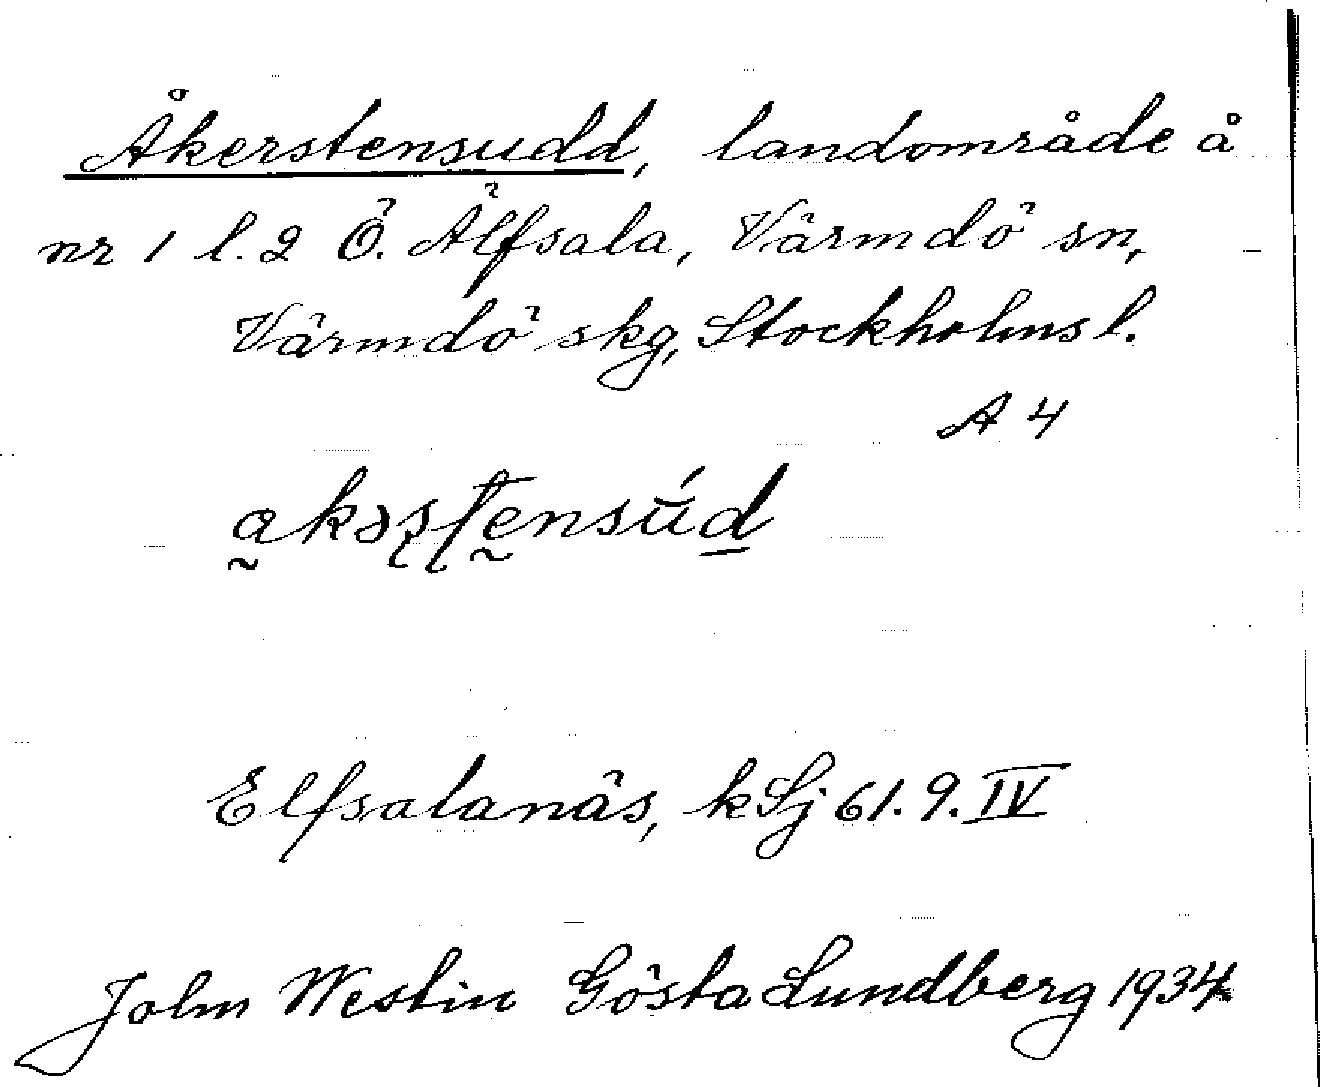 Åkerstensudd, landområde å
nr 1 l. 2 Ö. Älfsala, Värmdö sn,
Värmdö skg, Stockholms l.
A 4
a̰kəʂʈḛnsū́d̲
Elfsalanäs, kSj 61.9.IV
John Westin Gösta Lundberg 1934